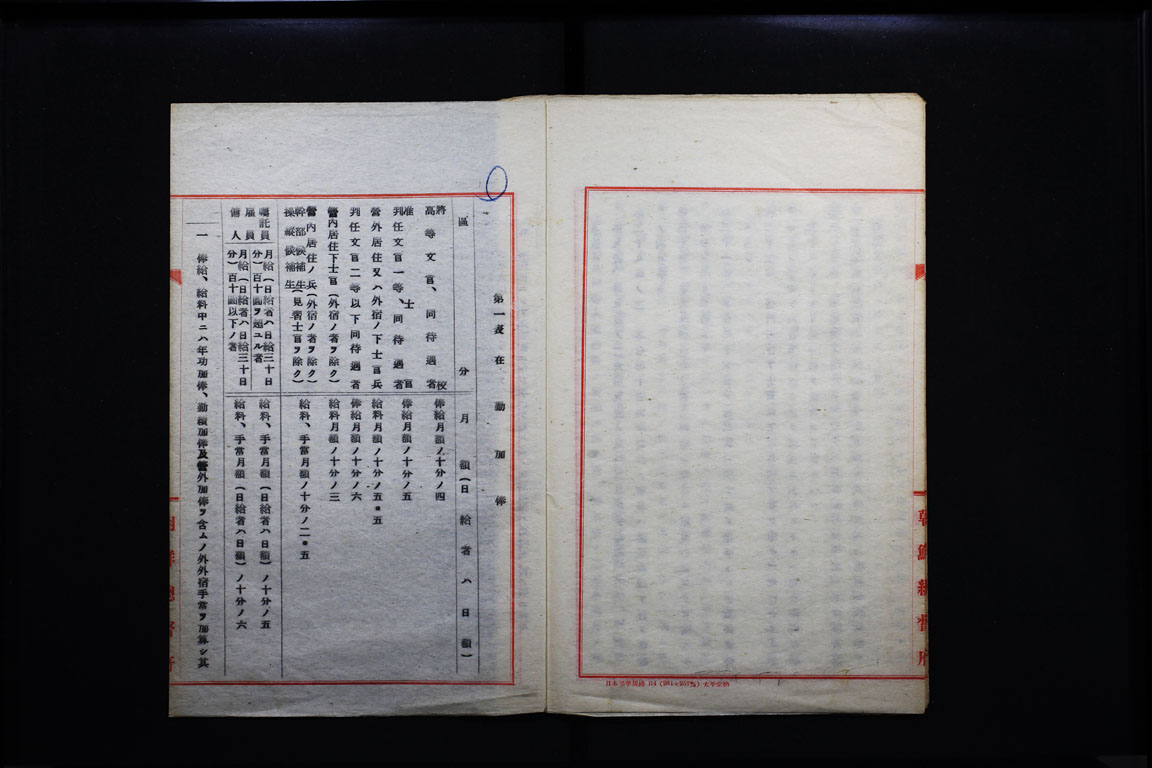 朝鮮總督府
第一表 在勤加俸
區分 月額(日給者ハ日額)
將校
高等文官、同待遇者 俸給月額ノ十分ノ四
准士官
判任文官一等、同待遇者 俸給月額ノ十分ノ五
營外居住又ハ外宿ノ下士官兵 給料月額ノ十分ノ五・五
判任文官二等以下同待遇者 俸給月額ノ十分ノ六
營內居住下士官(外宿ノ者ヲ除ク) 給料月額ノ十分ノ三
營內居住ノ兵(外宿ノ者ヲ除ク)
幹部候補生(見習士官ヲ除ク)
操縱候補生 給料、手當月額ノ十分ノ二・五
囑託員
雇員
傭人
月給(日給者ハ日給三十日分)百十圓ヲ超ユル者 給料、手當月額(日給者ハ日額)ノ十分ノ五
月給(日給者ハ日給三十日分)百十圓以下ノ者 給料、手當月額(日給者ハ日額)ノ十分ノ六
一 俸給、給料中ニハ年功加俸、勤續加俸及營外加俸ヲ含ムノ外外宿手當ヲ加算シ其
朝鮮總督府